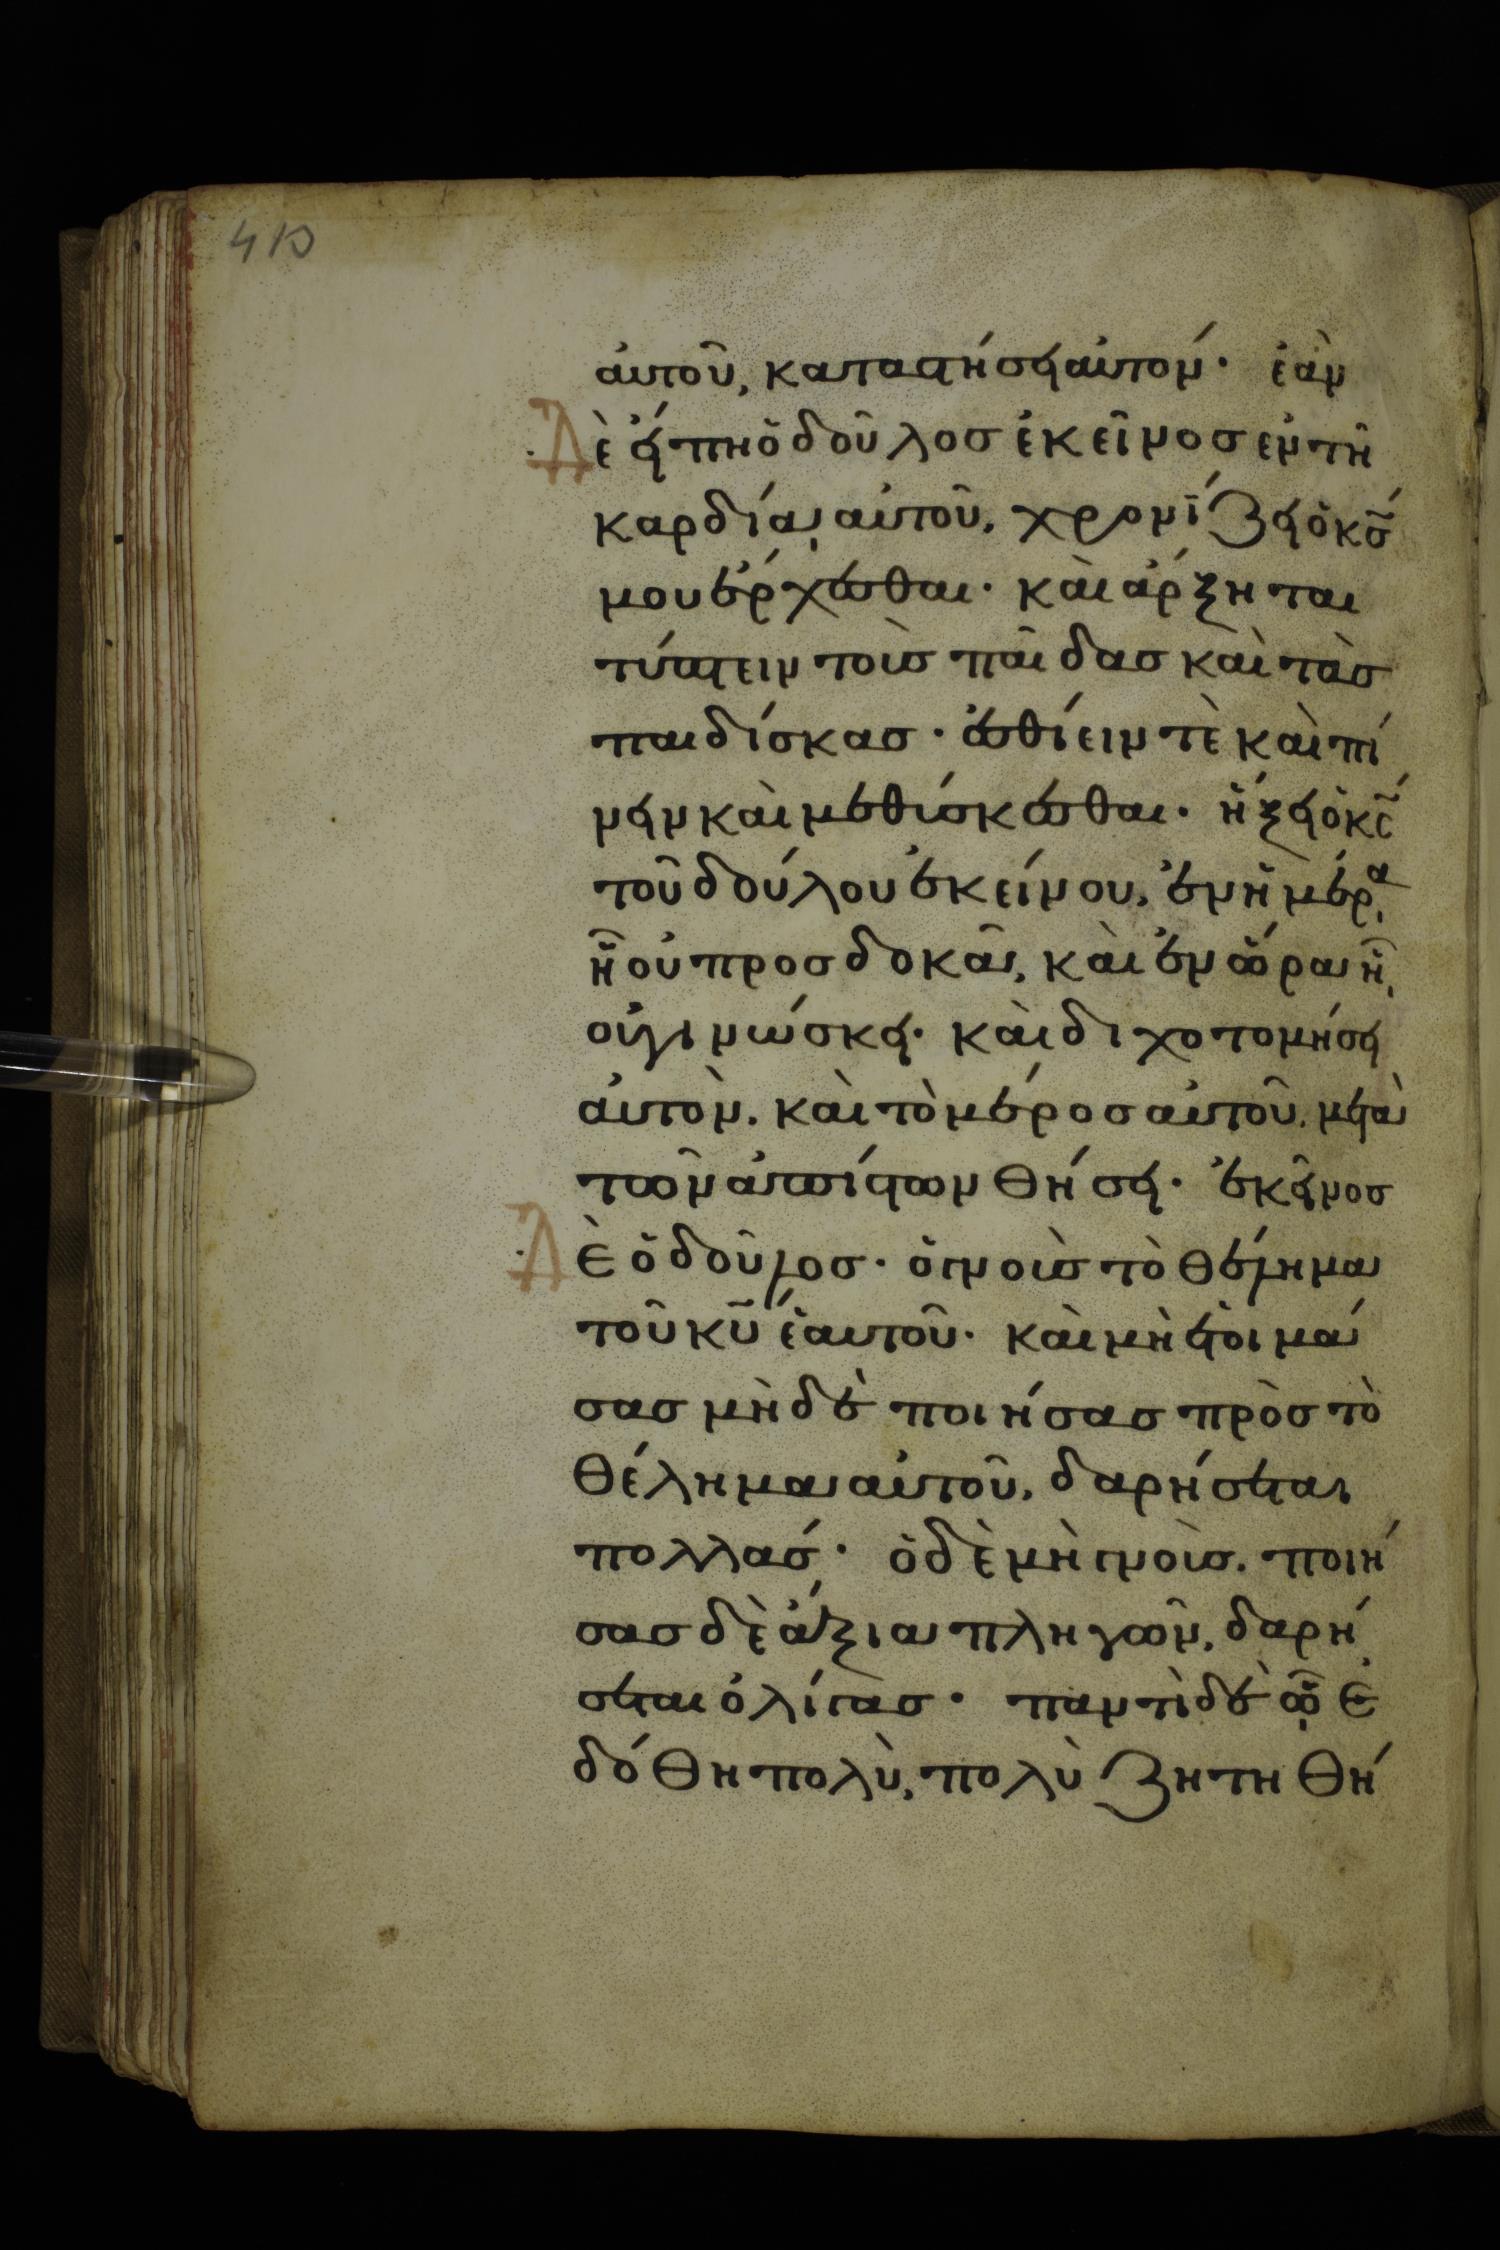 413
αὐτοῦ, καταστήσει αὐτόν· ἐὰν
Δὲ εἴπη ὁ δοῦλος ἐκεῖνος ἐν τῆ
καρδία αὐτοῦ, χρονίζει ὁ κς
μου ἔρχεσθαι· καὶ ἄρξηται
τύπτειν τοὺς παῖδας καὶ τὰς
παιδίσκας· ἐσθίειν τὲ καὶ πί
νειν καὶ μεθύσκεσθαι· ἥξει ὁ κς
τοῦ δούλου ἐκείνου, ἐν ἡμέρα
ἧ οὐ προσδοκᾶ, καὶ ἐν ὥρα ἧ
οὐ γινώσκει· καὶ διχοτομήσει
αὐτὸν, καὶ τὸ μέρος αὐτοῦ, μετὰ
τῶν ἀπίστων θήσει· ἐκεῖνος
Δὲ ὁ δοῦλος· ὁ γνοὺς τὸ θέλημα
τοῦ κυ ἑαυτοῦ· καὶ μὴ ἑτοιμά
σας μὴδὲ ποιήσας πρὸς τὸ
θέλημα αὐτοῦ, δαρήσεται
πολλάς· ὁ δὲ μὴ γνοὺς, ποιή
σας δὲ ἄξια πληγῶν, δαρή
σεται ὀλίγας· παντὶ δὲ ᾧ ἐ
δόθη πολὺ, πολὺ ζητηθή